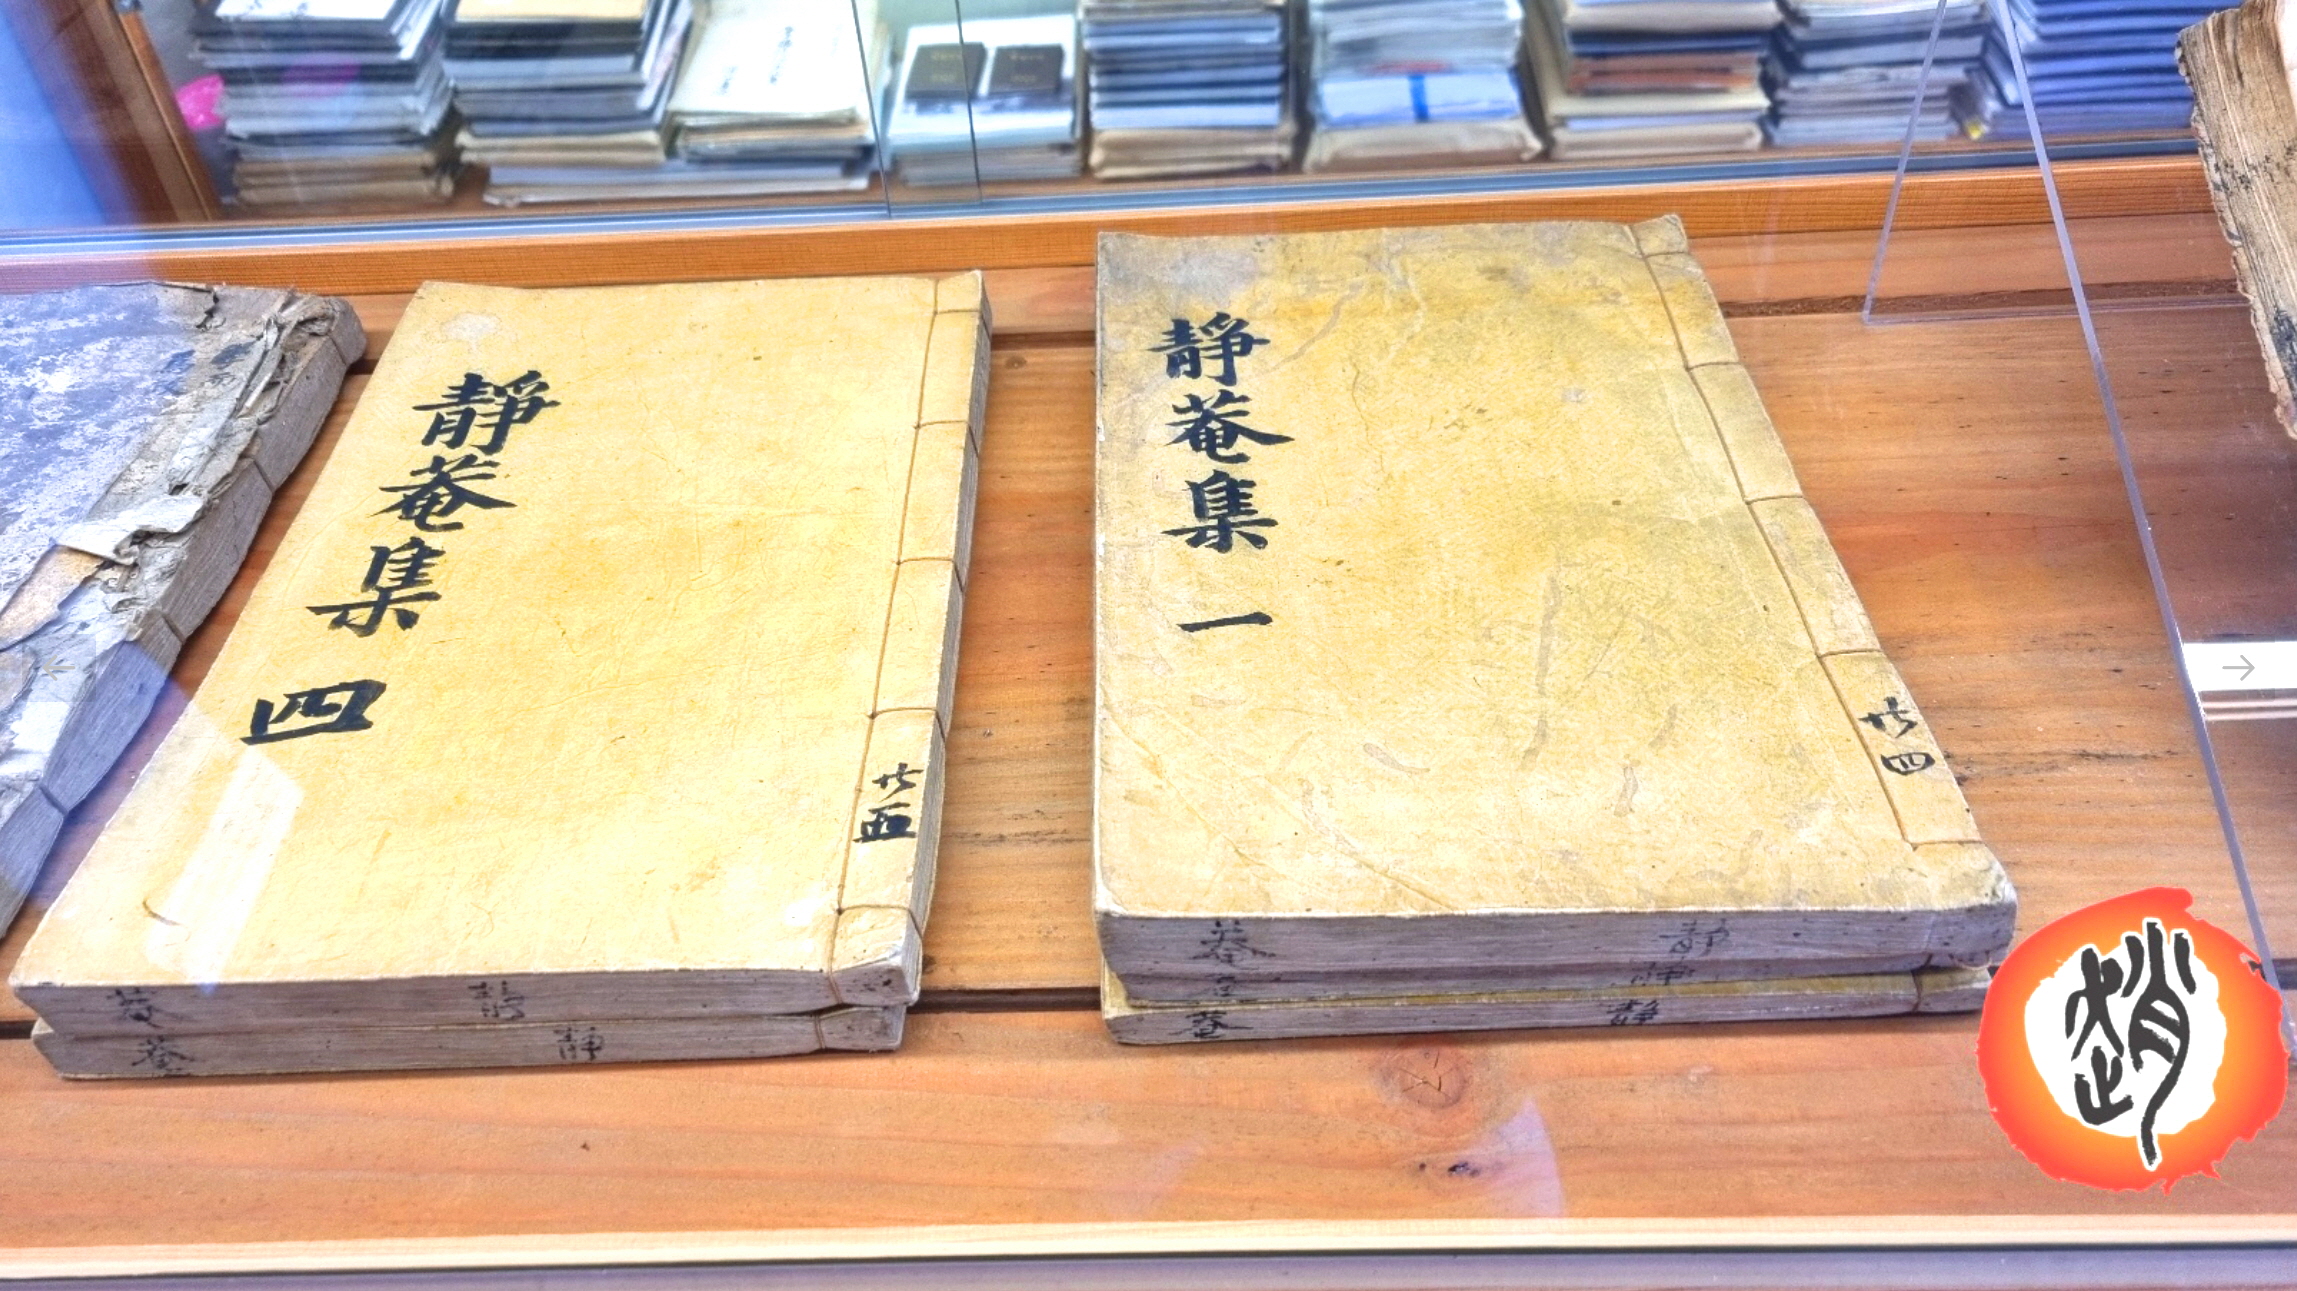 靜菴集 一
靜菴集 四
卄四
卄五
菴
靜
菴
靜
菴
靜
菴
靜
趙